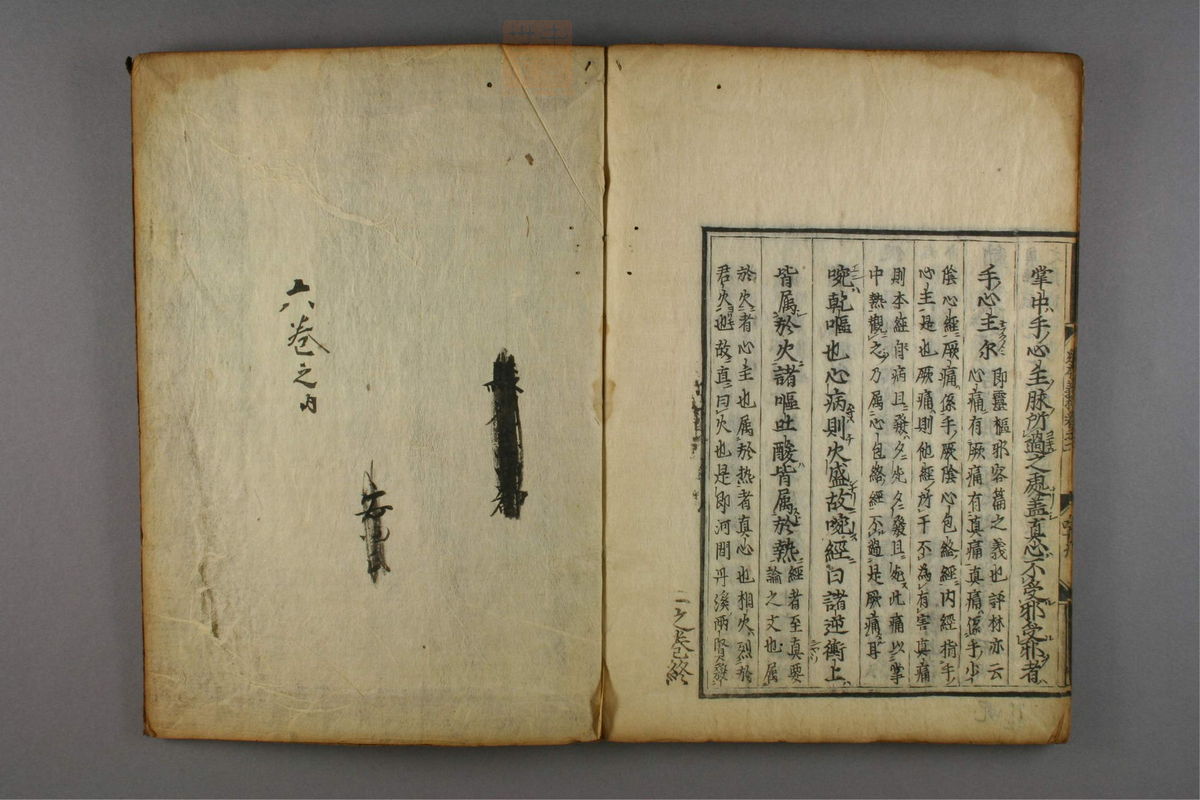 掌中手心主脉所過之處盖真心不受邪受邪者
手心主尔即靈樞邪客篇之義也評林亦云
心痛有厥痛有真痛真痛係手少
陰心經厥痛係手厥陰心包絡經内經指手
心主是也厥痛則他經所干不為有害真痛
則本經自病且發夕死夕發旦死此痛以掌
中熱觀之乃属心包絡經不過是厥痛耳
啘乾嘔也心病則火盛故啘經曰諸逆衝上
皆属於火諸嘔吐酸皆属於熱經者至真要
論之文也属
於火者心主也属於热者真心也相火烈於
君火也故真曰火也是即河間丹溪兩賢發
一之巻已終
六巻之内